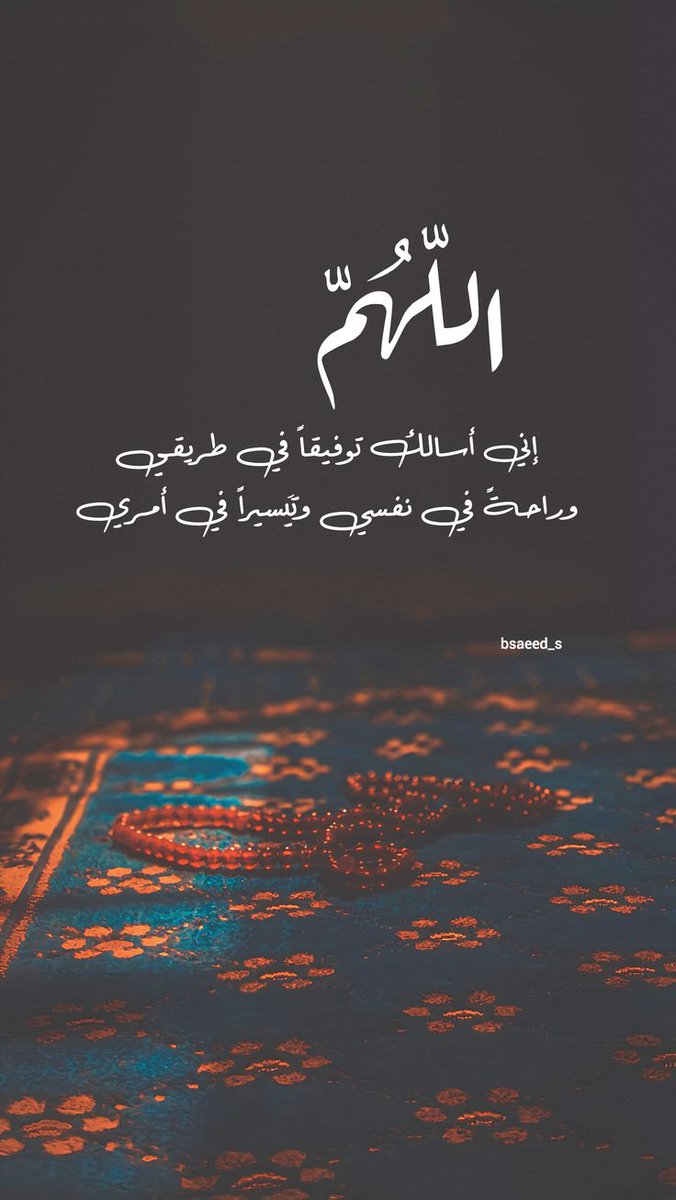 اللّهُمّ
إني أسالك توفيقاً في طريقي
وراحةً في نفسي وتَيسيراً في أمري
bsaeed_s